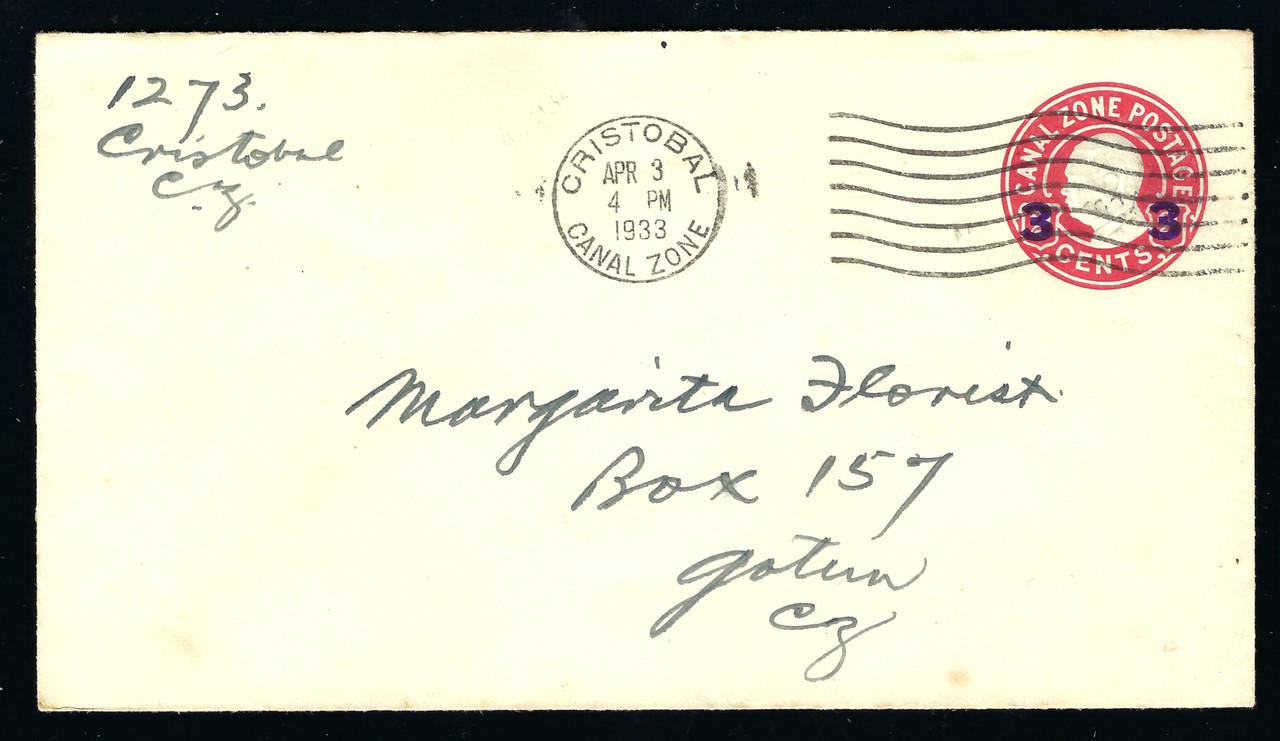 1273.
Cristobal
C.Z.
CRISTOBAL
APR 3
4 PM
1933
CANAL ZONE
CANAL ZONE POSTAGE
3 3
CENTS
Margarita Florist.
Box 157
Gatun
CZ